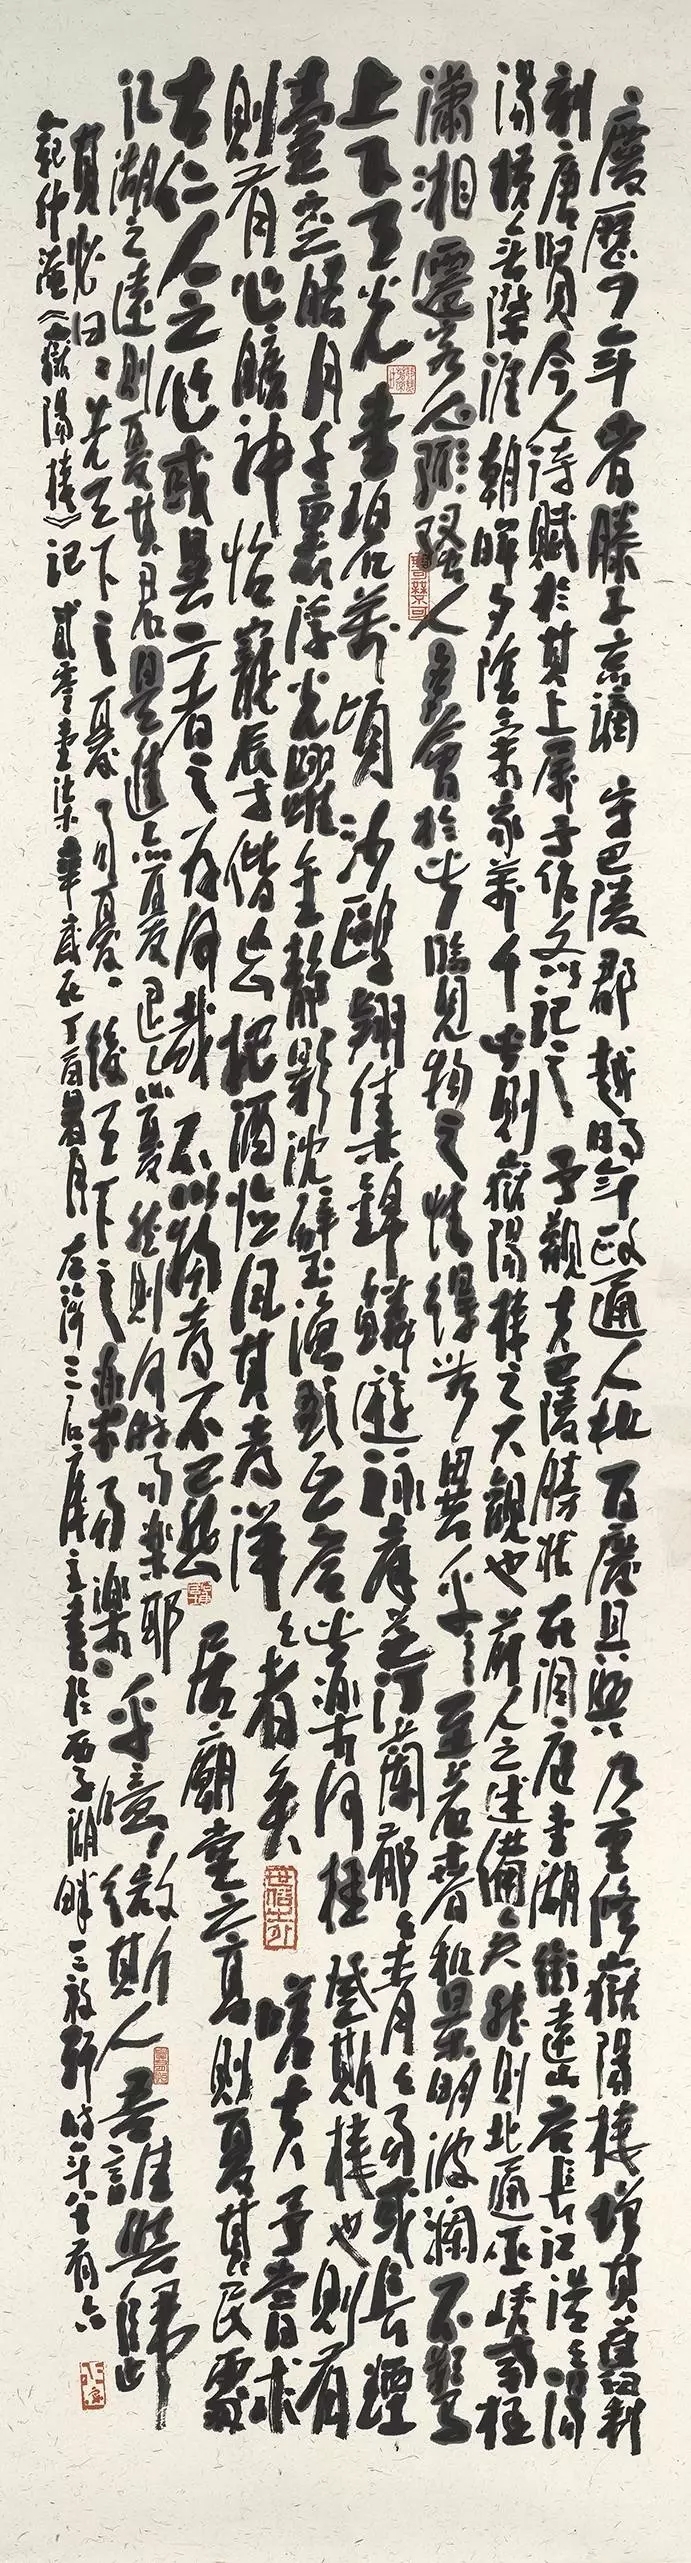 慶歷四年春滕子京謫守巴陵郡越明年政通人和百廢具興乃重修嶽陽樓增其舊制
刻唐賢今人詩賦於其上屬予作文以記之予觀夫巴陵勝狀在洞庭壹湖銜遠山吞長江浩浩湯
湯橫無際涯朝暉夕陰氣象萬千此則嶽陽樓之大觀也前人之述備矣然則北通巫峽南極
瀟湘遷客騷人多會於此覽物之情得無異乎至若春和景明波瀾不驚
上下天光壹碧萬頃沙鷗翔集錦鱗遊泳岸芷汀蘭郁郁青青而或長煙
壹空皓月千裏浮光躍金靜影沈璧漁歌互答此樂何極登斯樓也則有
則有心曠神怡寵辱偕忘把酒臨風其喜洋洋者矣嗟夫予嘗求
古仁人之心或異二者之為何哉不以物喜不以己悲居廟堂之高則憂其民處
江湖之遠則憂其君是進亦憂退亦憂然則何時而樂耶
其必曰先天下之憂而憂後天下之樂而樂乎噫微斯人吾誰與歸
範仲淹《嶽陽樓》記 貳零壹柒年歲在丁酉暑月左海三石主書於西子湖畔時年八十有六